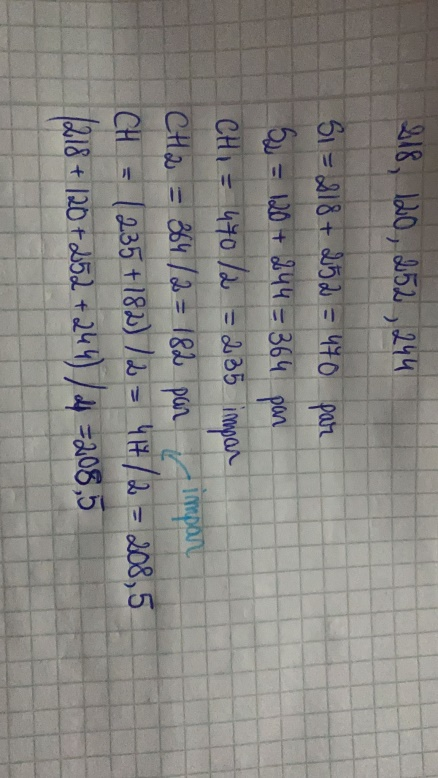 218, 120, 252, 244
S1 = 218 + 252 = 470 par
S2 = 120 + 244 = 364 par
CH1 = 470/2 = 235 impar
CH2 = 364/2 = 182 par
impar
CH = (235 + 182)/2 = 417/2 = 208,5
(218 + 120 + 252 + 244)/4 = 208,5